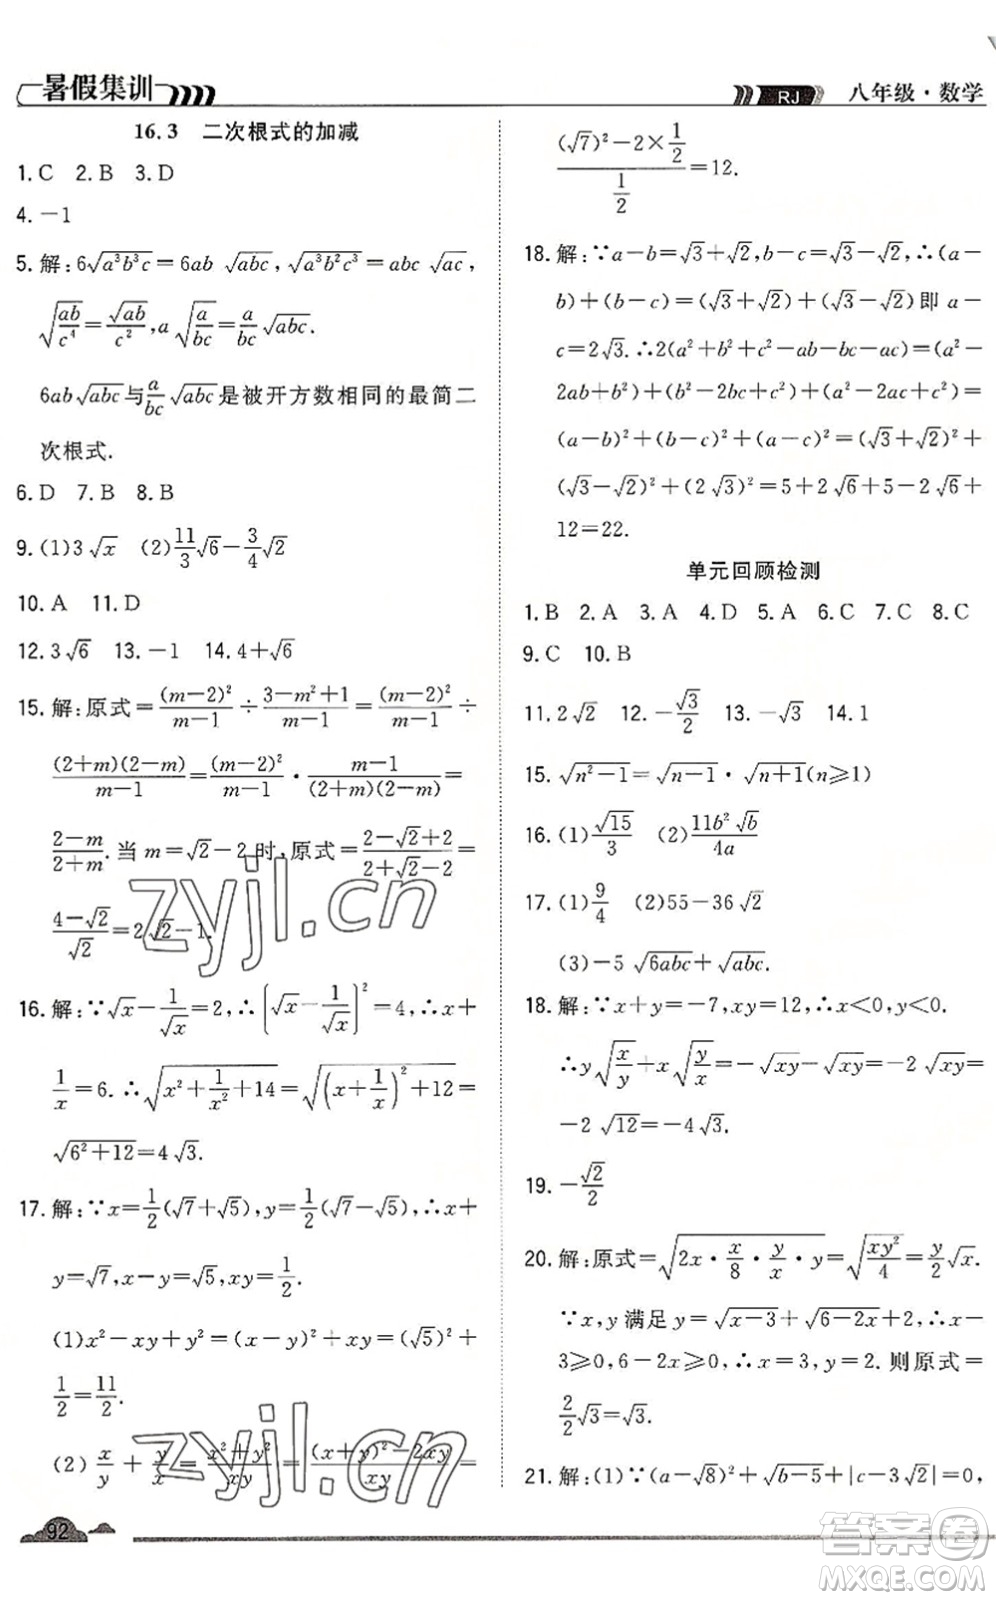 暑假集训
RJ 八年级·数学
16.3 二次根式的加减
1. C 2. B 3. D
4. －1
5. 解:6√(a³b³c)=6ab √(abc),√(a³b²c³)=abc √(ac),
√(ab/c⁴)=√(ab)/c²,a√(a/bc)=a/bc √(abc).
6ab√(abc)与a/bc √(abc)是被开方数相同的最简二
次根式.
6. D 7. B 8. B
9. (1)3√x (2)11/3√6－3/4√2
10. A 11. D
12. 3√6 13. －1 14. 4＋√6
15. 解:原式=(m－2)²/(m－1)÷(3－m²＋1)/(m－1)=(m－2)²/(m－1)÷
(2＋m)(2－m)/(m－1)=(m－2)²/(m－1)·(m－1)/((2＋m)(2－m))=
(2－m)/(2＋m).当 m=√2－2时,原式=(2－√2＋2)/(2＋√2－2)=
(4－√2)/√2=2√2－1.
16. 解:∵√x－1/√x=2,∴(√x－1/√x)²=4,∴x＋
1/x=6.∴√(x²＋1/x²＋14)=√((x＋1/x)²＋12)=
√(6²＋12)=4√3.
17. 解:∵x=1/2(√7＋√5),y=1/2(√7－√5),∴x＋
y=√7,x－y=√5,xy=1/2.
(1)x²－xy＋y²=(x－y)²＋xy=(√5)²＋
1/2=11/2.
(2)x/y＋y/x=(x²＋y²)/xy=((x＋y)²－2xy)/xy=
92
((√7)²－2×1/2)/(1/2)=12.
18. 解:∵a－b=√3＋√2,b－c=√3－√2,∴(a－
b)＋(b－c)=(√3＋√2)＋(√3－√2)即 a－
c=2√3.∴2(a²＋b²＋c²－ab－bc－ac)=(a²－
2ab＋b²)＋(b²－2bc＋c²)＋(a²－2ac＋c²)=
(a－b)²＋(b－c)²＋(a－c)²=(√3＋√2)²＋
(√3－√2)²＋(2√3)²=5＋2√6＋5－2√6＋
12=22.
单元回顾检测
1. B 2. A 3. A 4. D 5. A 6. C 7. C 8. C
9. C 10. B
11. 2√2 12. －√3/2 13. －√3 14. 1
15. √(n²－1)=√(n－1)·√(n＋1)(n≥1)
16. (1)√15/3 (2)11b²√b/4a
17. (1)9/4 (2)55－36√2
(3)－5√(6abc)＋√(abc).
18. 解:∵x＋y=－7,xy=12,∴x＜0,y＜0.
∴y√(x/y)＋x√(y/x)=－√(xy)－√(xy)=－2√(xy)=
－2√12=－4√3.
19. －√2/2
20. 解:原式=√(2x·x/8·y/x·y)=√(xy²/4)=y/2√x.
∵x,y 满足 y=√(x－3)＋√(6－2x)＋2,∴x－
3≥0,6－2x≥0,∴x=3,y=2.则原式=
2/2√3=√3.
21. 解:(1)∵(a－√8)²＋√(b－5)＋|c－3√2|=0,
zyjl.cn
zyjl.cn
答案圈
MXQE.COM